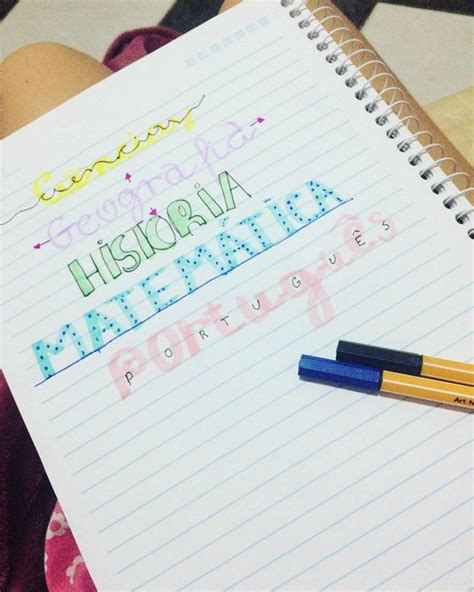 Ciências
Geografia
HISTÓRIA
MATEMÁTICA
português
PORTUGUÊS